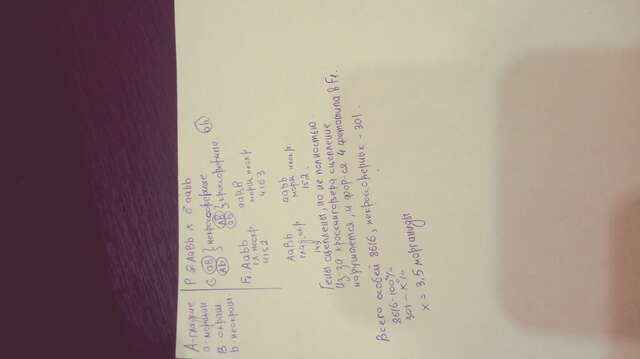 A-гладкие
a-морщин
B-окраш.
b-неокраш.
P ♀ AaBb x ♂ aabb
G (aB) (Ab) } некроссоверные
(AB) (ab) } кроссоверные
(ab)
F₁ Aabb aaBB
гл неокр морщ окр.
4152 4163
AaBb aabb
глад окр морщ неокр
149 152
Гены сцеплены, но не полностью
Из-за кроссинговера сцепление
нарушается, и фор-ся 4 фенотипа в F₁.
Всего особей 8616, некроссоверных - 301.
8616-100%
301 - x%
x = 3,5 морганиды